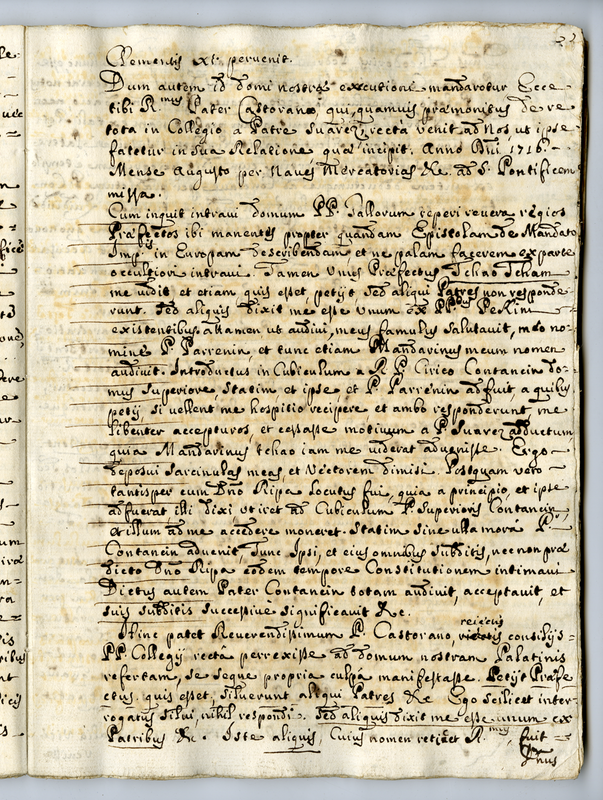 Clementis XI. pervenit.
Dum autem id domi nostræ executioni mandaretur Ecce
tibi R.mus Pater Castorano, qui, quamvis præmonitus de re
tota in Collegio a Patre Suarez, rectà venit ad Nos ut ipse
fatetur in sua Relatione quæ incipit. Anno Dni. 1716.
Mense Augusto per Naves Mercatorias &c. ad S. Pontificem
missa.
Cum inquit intravi domum PP. Gallorum reperi revera regios
Præfectos ibi manentes propter quandam Epistolam de Mandato
Imp.is in Europam describendam et ne palam facerem ex parte
occultiori intravi. Tamen Unus Præfectus Tchao Tcham
me vidit et etiam quis esset, petijt sed aliqui Patres non responde
runt. Sed aliquis dixit me esse Unum ex PP.bus Pekin
existentibus. attamen ut audivi, meus famulus salutavit, modo no-
mine P. Parrenin, et tunc etiam Mandarinus meum nomen
audivit. Introductus in Cubiculum a R. P. Cirico Contancin do-
mus Superiore, statim et ipse, et P. Parrenin adfuit, a quibus
petij, si vellent me hospitio recipere et ambo responderunt, me
libenter accepturos, et cessasse motivum a P. Suarez adductum
quia Mandarinus tchao iam me viderat advenisse. Ergo
deposui sarcinulas meas, et Vectorem dimisi. Postquam vero
tantisper cum Dno Ripa locutus fui, quia a principio, et ipse
adfuerat illi dixi ut iret ad Cubiculum P. Superioris Contancin
et illum ad me accedere moneret. Statim sine ulla mora P.
Contancin advenit, Tunc Ipsi, et eius omnibus subditis, nec non præ
dicto Dno Ripa eodem tempore Constitutionem intimavi
Dictus autem Pater Contancin totam audivit, acceptavit, et
suis subditis successive significavit &c.
Hinc patet Reverendissimum P. Castorano, reiectis consilijs
PP. Collegij rectà perrexisse ad domum nostram Palatinis
refertam, se seque propria culpa manifestasse. Petijt Præfe
ctus quis esset, siluerunt aliqui Patres &c Ego scilicet inter-
rogatus silui, nihil respondi. Sed aliquis dixit me esse unum ex
Patribus &c. Iste aliquis, Cuius nomen reticet R.mus, fuit
Unus